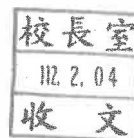 校長室
112.2.04
收文